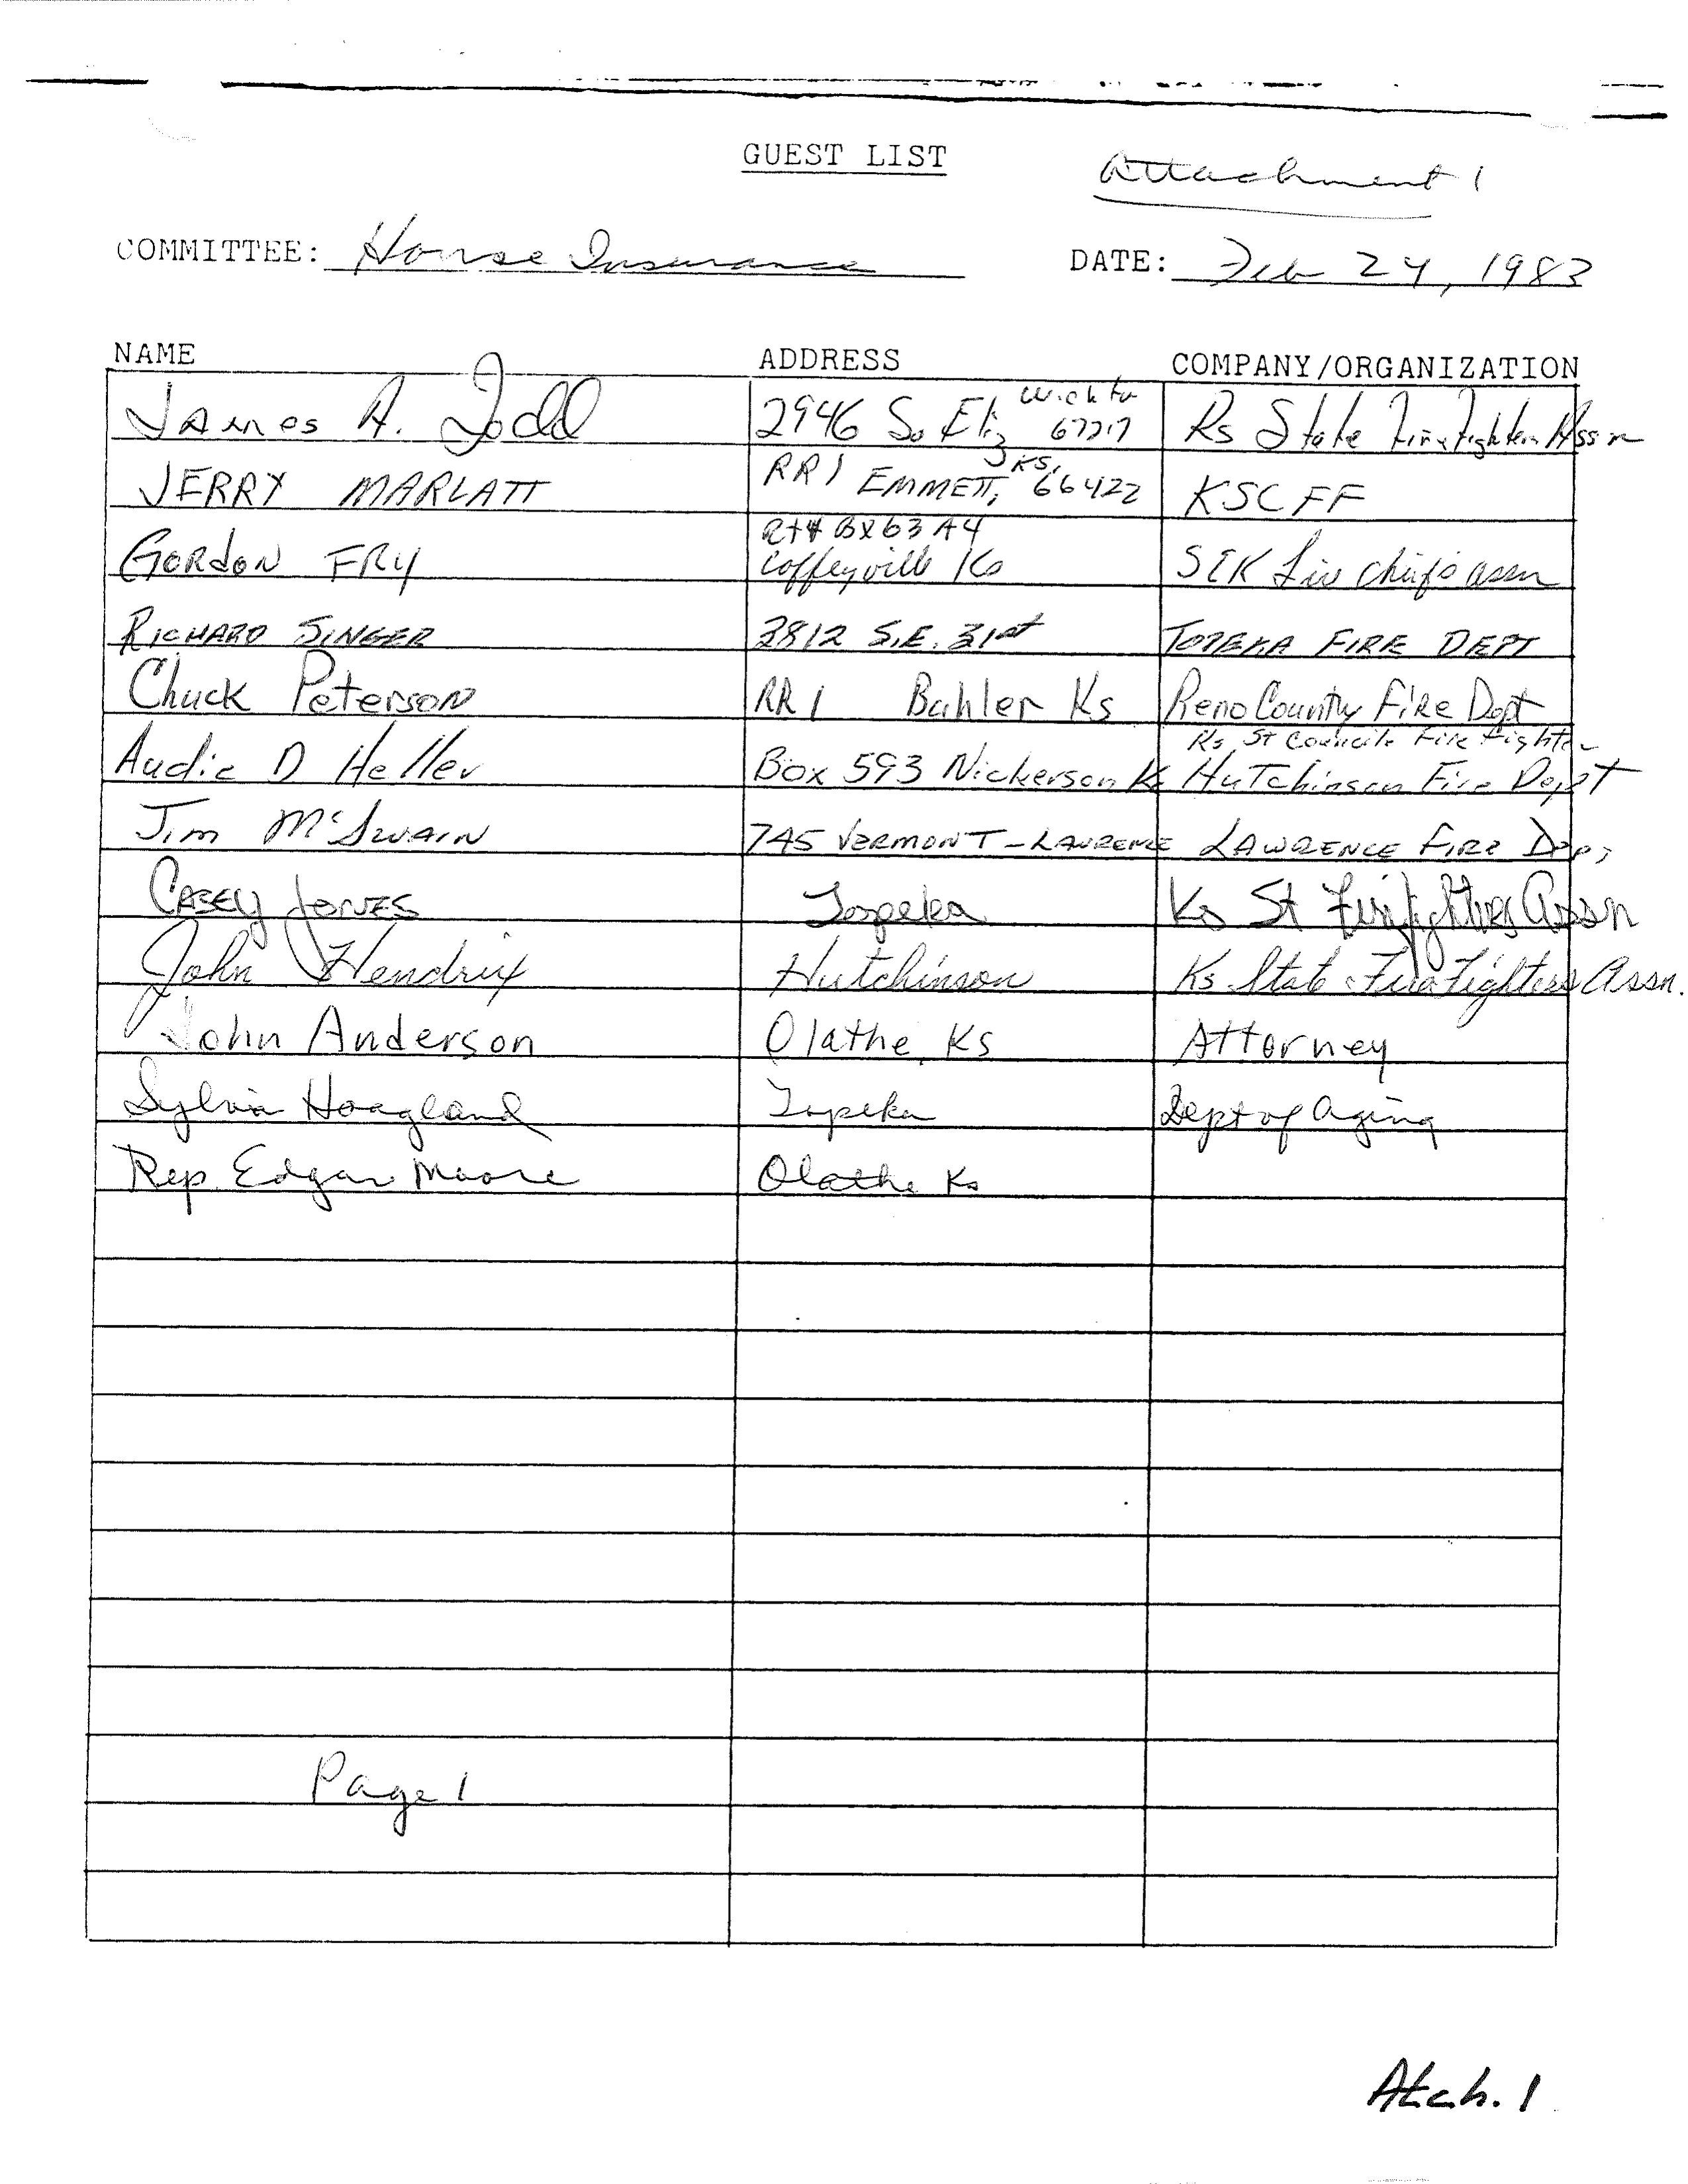 GUEST LIST
Attachment 1
COMMITTEE: House Insurance DATE: Feb 24, 1983
NAME ADDRESS COMPANY/ORGANIZATION
James A. Todd 2946 So Eliz Wichta 67217 Ks State Firefighters Assn
JERRY MARLATT RR1 EMMETT, KS, 66422 KSCFF
GORDON FRY Rt 4 BX 63 A4 Coffeyville Ks SEK Fire chiefs assn
RICHARD SINGER 3812 S.E. 31st TOPEKA FIRE DEPT
Chuck Peterson RR1 Buhler Ks Reno County Fire Dept
Audie D Heller Box 593 Nickerson Ks Ks St Councile Fire Fighter Hutchinson Fire Dept
Jim McSwain 745 VERMONT - LAWRENCE LAWRENCE FIRE Dept
CASEY JONES Topeka Ks St Firefighters Assn
John Hendrix Hutchinson Ks State FireFighters Assn.
John Anderson Olathe, Ks Attorney
Sylvia Hougland Topeka Dept of Aging
Rep. Edgar Moore Olathe Ks
Page 1
Atch. 1